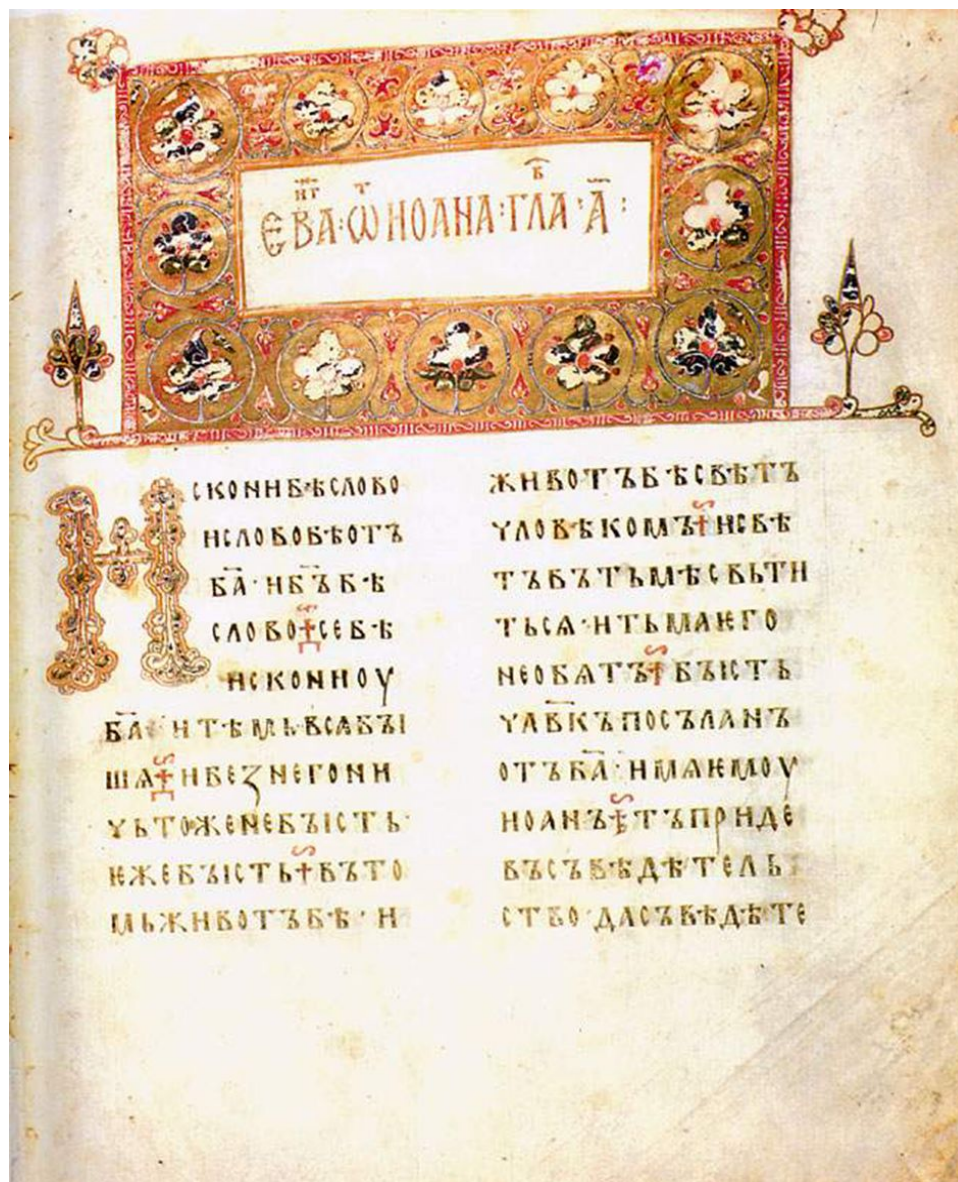 ЕВАНГ҃· Ѿ ИОАНА· ГЛАВ҃· А҃:
ИСКОНИБѢСЛОВО
ИСЛОВОБѢОТЪ
БА҃· ИБЪ҃БѢ
СЛОВО СЕБѢ
ИСКОНИОУ
БА҃· ИТѢМЬВСѦБЪІ
ШѦ ИБЕЗНЕГОНИ
ЧЬТОЖЕНЕБЪІСТЬ·
ѤЖЕБЪІСТЬ ВЪТО
МЬЖИВОТЪБѢ· И
ЖИВОТЪБѢСВѢТЪ
ЧЛОВѢКОМЪ ИСВѢ
ТЪВЪТЬМѢСВЬТИ
ТЬСѦ· ИТЬМАѤГО
НЕОБѦТЪ БЪІСТЬ
ЧЛВ҃КЪПОСЪЛАНЪ
ОТЪБА҃· ИМѦѤМОУ
ИОАНЪ ТЪПРИДЕ
ВЪСЪВѢДѢТЕЛЬ
СТВО· ДАСЪВѢДѢТЕ